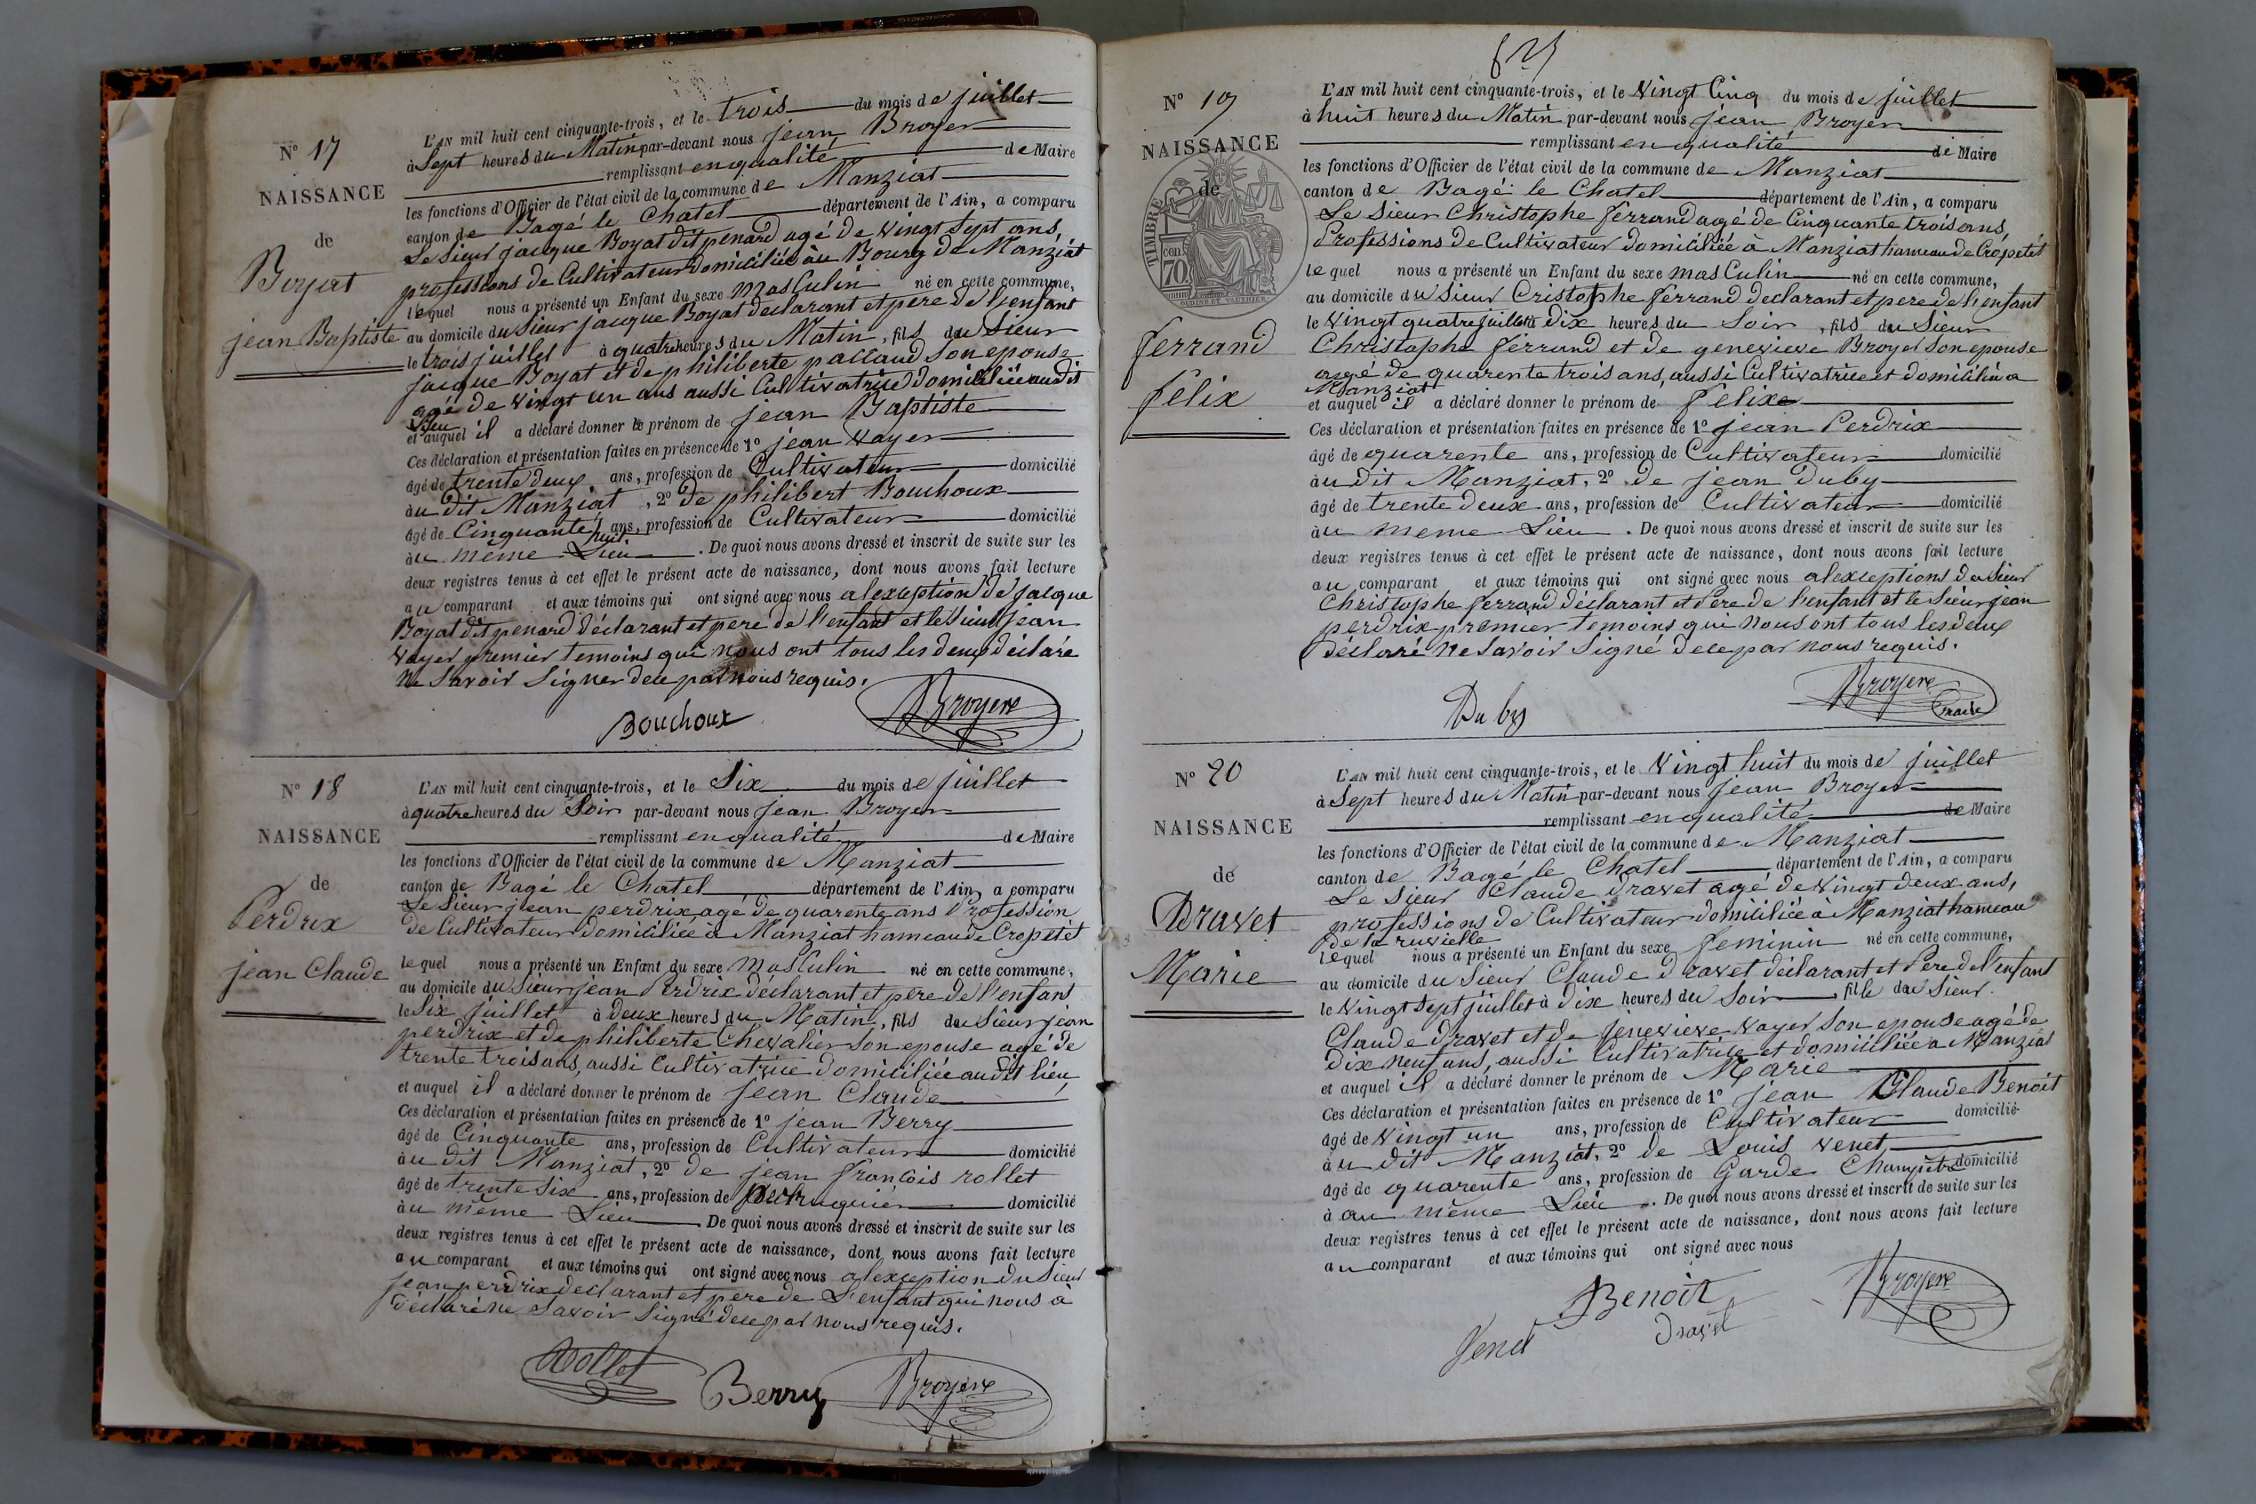 N° 17
NAISSANCE
de
Boyat
jean Baptiste
L'AN mil huit cent cinquante-trois, et le trois du mois de juillet
à Sept heures du Matin par-devant nous jean Broyer
remplissant en qualité de Maire
les fonctions d'Officier de l'état civil de la commune de Manziat
canton de Bagé le Chatel département de l'Ain, a comparu
Le Sieur jacque Boyat dit penard agé de vingt Sept ans,
professions de Cultivateur domiciliée àu Bourg de Manziat
lequel nous a présenté un Enfant du sexe masCulin né en cette commune,
au domicile du Sieur jacque Boyat declarant et pere de l'enfant
le trois juillet à quatre heures du Matin, fils du Sieur
jacque Boyat et de philiberte pallaud Son epouse
agé de vingt un ans aussi Cultivatrice domiciliée au dit
Lieu
et auquel il a déclaré donner le prénom de jean Baptiste
Ces déclaration et présentation faites en présence de 1° jean vayer
âgé de trente deux ans, profession de Cultivateur domicilié
àu dit Manziat, 2° de philibert Bouchoux
âgé de Cinquante huit ans, profession de Cultivateur domicilié
àu meme Lieu. De quoi nous avons dressé et inscrit de suite sur les
deux registres tenus à cet effet le présent acte de naissance, dont nous avons fait lecture
au comparant et aux témoins qui ont signé avec nous alexception de jacque
Boyat dit penard déclarant et pere de l'enfant et le Sieur jean
vayer premier temoins qui nous ont tous les deux déclaré
ne Savoir Signer dece par nous requis.
Bouchoux Broyere
N° 18
NAISSANCE
de
Perdrix
jean Claude
L'AN mil huit cent cinquante-trois, et le Six du mois de juillet
à quatre heures du Soir par-devant nous jean Broyer
remplissant en qualité de Maire
les fonctions d'Officier de l'état civil de la commune de Manziat
canton de Bagé le Chatel département de l'Ain, a comparu
Le Sieur jean perdrix, agé de quarente ans Profession
de Cultivateur domiciliée à Manziat hameau de Cropetet
lequel nous a présenté un Enfant du sexe MasCulin né en cette commune,
au domicile du Sieur jean Perdrix declarant et pere de l'enfant
le Six juillet à deux heures du Matin, fils du Sieur jean
perdrix et de philiberte Chevalier Son epouse agé de
trente trois ans, aussi Cultivatrice domiciliée audit lieu,
et auquel il a déclaré donner le prénom de jean Claude
Ces déclaration et présentation faites en présence de 1° jean Berry
âgé de Cinquante ans, profession de Cultivateur domicilié
àu dit Manziat, 2° de jean françois rollet
âgé de trente Six ans, profession de domicilié
àu meme Lieu. De quoi nous avons dressé et inscrit de suite sur les
deux registres tenus à cet effet le présent acte de naissance, dont nous avons fait lecture
au comparant et aux témoins qui ont signé avec nous alexception du Sieur
jean perdrix declarant et pere de L'enfant qui nous à
déclaré ne Savoir Signé dece par nous requis.
Rollet Berry Broyere
N° 19
NAISSANCE
de
TIMBRE
70
ferrand
félix
L'AN mil huit cent cinquante-trois, et le Vingt Cinq du mois de juillet
à huit heures du Matin par-devant nous jean Broyer
remplissant en qualité de Maire
les fonctions d'Officier de l'état civil de la commune de Manziat
canton de Bagé le Chatel département de l'Ain, a comparu
Le Sieur Christophe férrand agé de Cinquante trois ans,
Professions de Cultivateur domiciliée à Manziat hameau de Cropetet
lequel nous a présenté un Enfant du sexe masCulin né en cette commune,
au domicile du Sieur Cristophe ferrand declarant et pere de l'enfant
le Vingt quatre juillet à dix heures du Soir, fils du Sieur
Christophe férrand et de genevieve Broyer Son epouse
agé de quarente trois ans, aussi Cultivatrice et domiciliée a
Manziat
et auquel il a déclaré donner le prénom de félix
Ces déclaration et présentation faites en présence de 1° jean Perdrix
âgé de quarente ans, profession de Cultivateur domicilié
àu dit Manziat, 2° de jean Duby
âgé de trente deux ans, profession de Cultivateur domicilié
àu meme Lieu. De quoi nous avons dressé et inscrit de suite sur les
deux registres tenus à cet effet le présent acte de naissance, dont nous avons fait lecture
au comparant et aux témoins qui ont signé avec nous alexceptions du Sieur
Christophe ferrand déclarant et Pere de l'enfant et le Sieur jean
perdrix premier temoins qui nous ont tous les deux
déclaré ne Savoir Signé dece par nous requis.
Duby Broyere
maire
N° 20
NAISSANCE
de
Dravet
Marie
L'AN mil huit cent cinquante-trois, et le Vingt huit du mois de juillet
à Sept heures du Matin par-devant nous jean Broyer
remplissant en qualité de Maire
les fonctions d'Officier de l'état civil de la commune de Manziat
canton de Bagé le Chatel département de l'Ain, a comparu
Le Sieur Claude dravet agé de vingt deux ans,
professions de Cultivateur domiciliée à Manziat hameau
de la ruvielle
lequel nous a présenté un Enfant du sexe feminin né en cette commune,
au domicile du Sieur Claude dravet déclarant et Pere de l'enfant
le Vingt Sept juillet à dix heures du Soir, fille du Sieur
Claude dravet et de jenevieve vayer Son epouse agé de
dix neuf ans, aussi Cultivatrice et domiciliée a Manziat
et auquel il a déclaré donner le prénom de Marie
Ces déclaration et présentation faites en présence de 1° jean Claude Benoit
âgé de Vingt un ans, profession de Cultivateur domicilié
àu dit Manziat, 2° de Louis venet,
âgé de quarente ans, profession de Garde Champêtre domicilié
à au même Lieu. De quoi nous avons dressé et inscrit de suite sur les
deux registres tenus à cet effet le présent acte de naissance, dont nous avons fait lecture
au comparant et aux témoins qui ont signé avec nous
Benoit Broyere
Venet Dravet